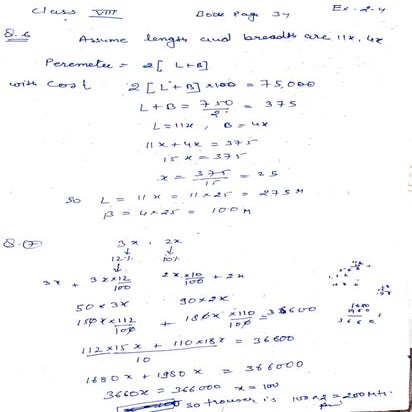 Class VIII Book Page 34 Ex-2.4
Q.6 Assume length and breadth are 11x, 4x
Perameter = 2[L+B]
with Cost 2[L+B]×100 = 75,000
L+B = 750/2 = 375
L=11x, B=4x
11x+4x = 375
15x = 375
x = 375/15 = 25
So L = 11x = 11×25 = 275M
B = 4×25 = 100M
Q.7 3x, 2x
12% 10%
3x + 3x×12/100 2x×10/100 + 2x
50×3x 90×2x
150x×112/100 + 180x×110/100 = 36600
112×15x + 110×18x / 10 = 36600
1680x + 1980x = 366000
3660x = 366000 x = 100
So trouser is 100×2 = 200 Mtr.